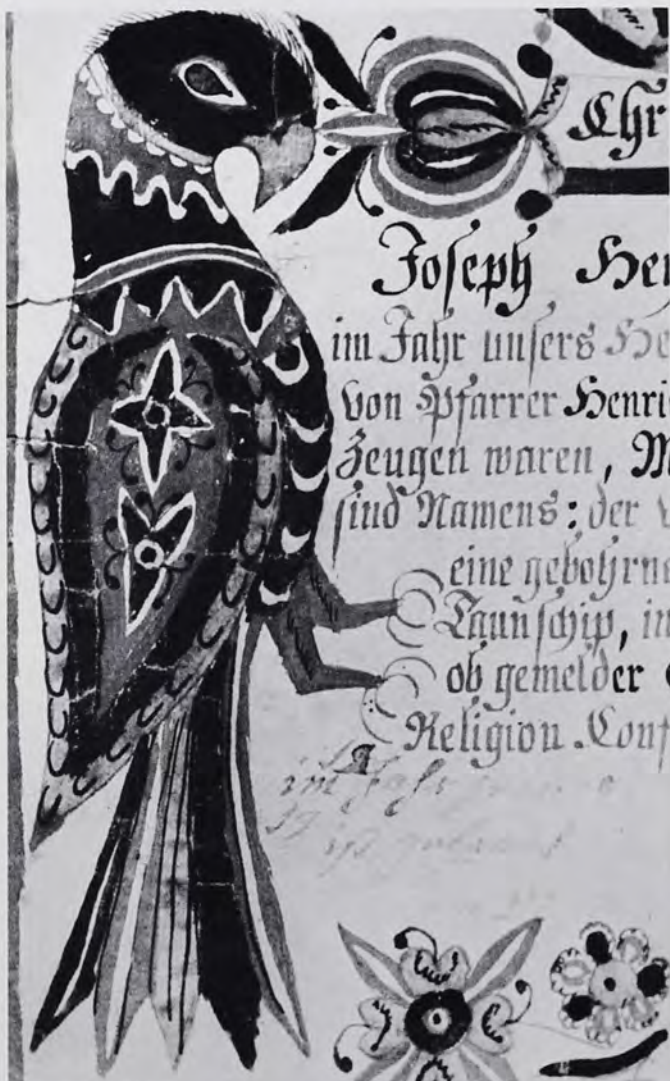 Chr
Joseph Hen
im Jahr unsers He
von Pfarrer Henri
Zeugen waren, M
sind Namens: der V
eine gebohrne
Taunschip, in
ob gemelder
Religion Conf
im Jahr
ist